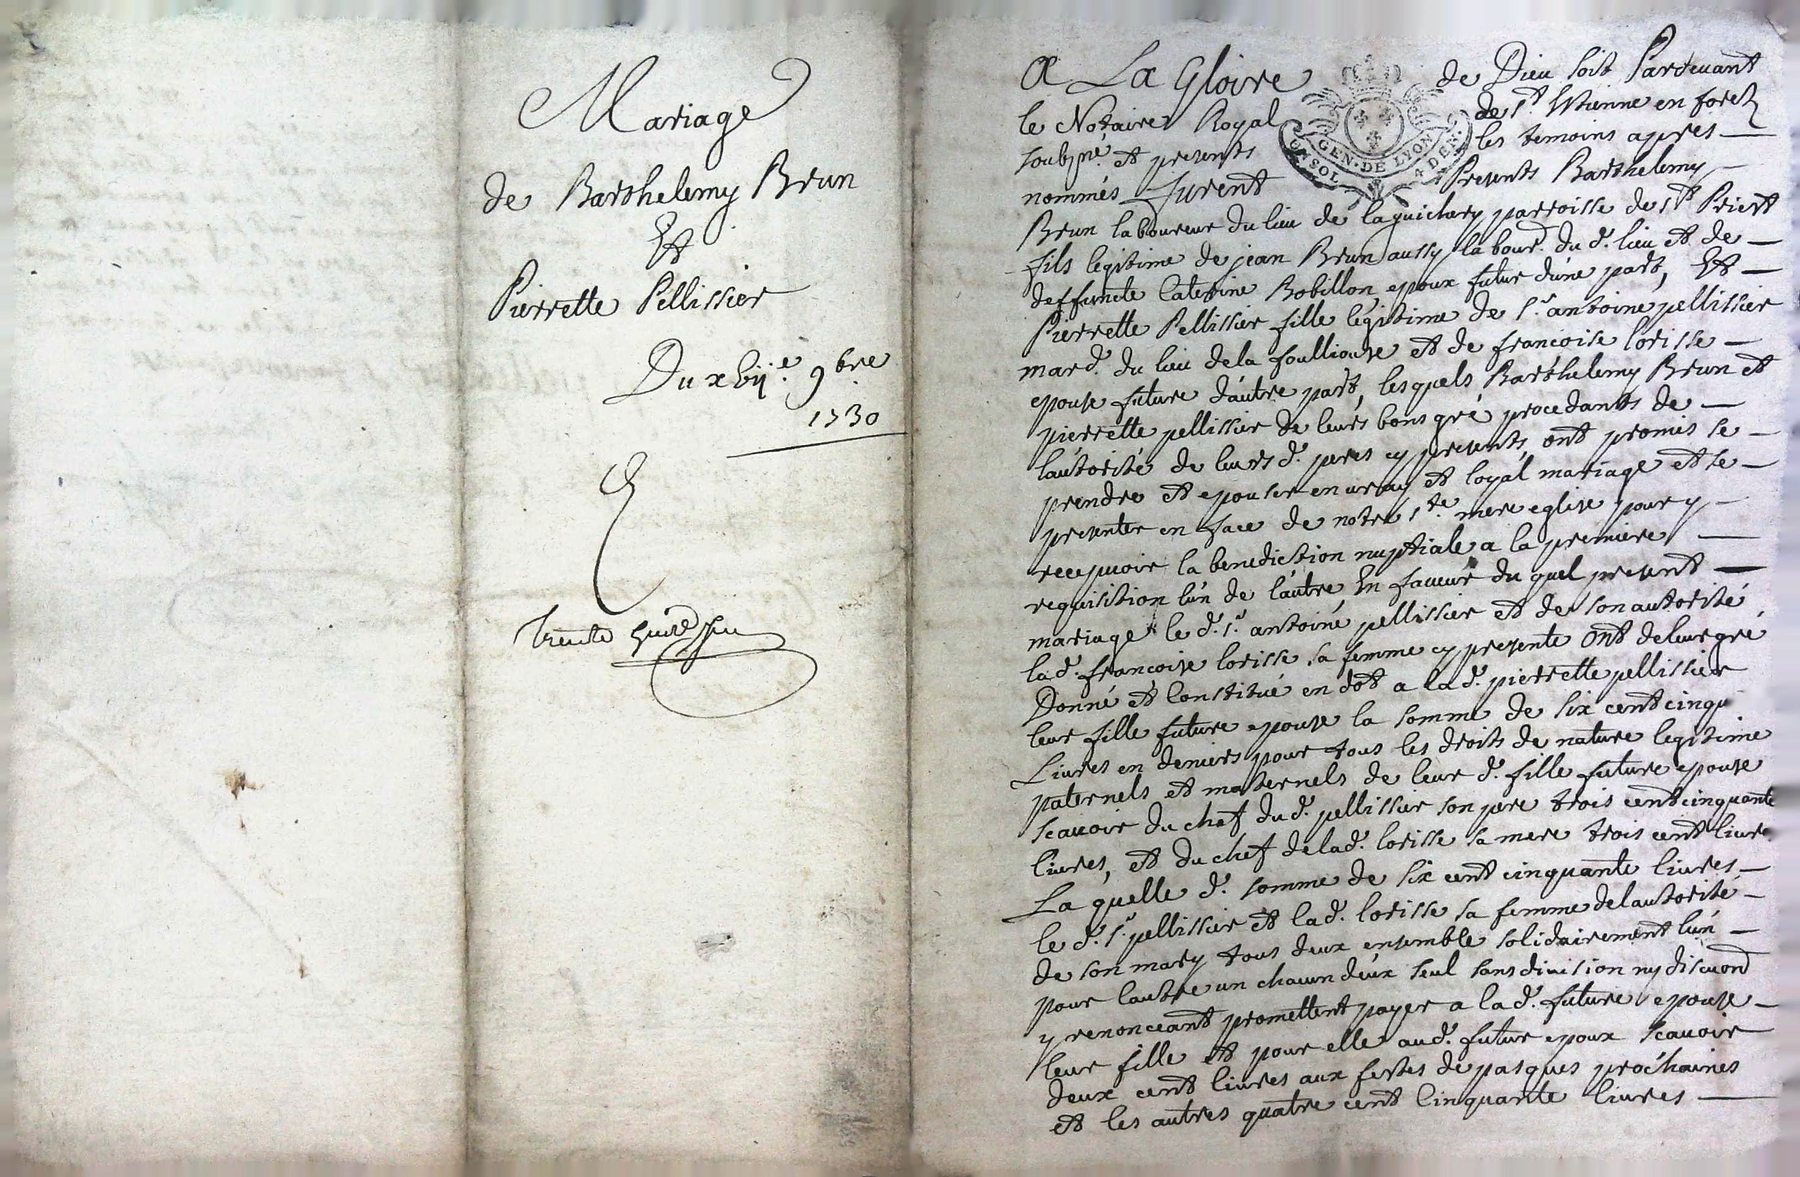 Mariage
de Barthelemy Brun
Et
Pierrette Pellissier
Du xvije. 9bre
1730
Trente
A La Gloire de Dieu soit Pardevant
le Notaire Royal de St. Estienne en forez
soubzné. et presents les temoins apres
nommés furent Presents Barthelemy
Brun laboureur du lieu de laguichery parroisse de St Priest
fils legitime de jean Brun aussy labour. du d. lieu et de
deffuncte Caterine Bobillon epoux futur d'une part, Et
Pierrette Pellissier fille legitime de Sr. antoine pellissier
mard. du lieu de la foulliouse et de francoise lorisse
epouse future d'autre part, lesquels Barthelemy Brun et
pierrette pellissier de leurs bons gré procedants de
l'autorité de leurs d. peres cy presents, ont promis se
prendre et epouser en vray et loyal mariage et se
presenter en face de notre Ste. mere eglise pour y
recepvoir la benediction nuptiale a la premiere
requisition l'un de l'autre En faveur du quel present
mariage le d. Sr. antoine pellissier et de son autorité
la d. francoise lorisse sa femme cy presente ont de leur gré
Donné et Constitué en dot a la d. pierrette pellissier
leur fille future epouse la somme de six cent cinqu
Livres en deniers pour tous les droits de nature legitime
paternels et maternels de leur d. fille future epouse
scavoir du chef du d. pellissier son pere trois cent cinquante
livres, et du chef de la d. lorisse sa mere trois cent livre
La quelle d. somme de six cent cinquante livres
le d. Sr. pellissier et la d. lorisse sa femme de l'autorité
de son mary tous deux ensemble solidairement l'un
pour l'autre un chacun d'eux seul sans division ny discuond
y renonceant promettent payer a la d. future epouse
leur fille et pour elle au d. futur epoux scavoir
deux cent livres aux festes de pasques prochaines
et les autres quatre cent Cinquante livres
GEN. DE LYON
4 DEN.